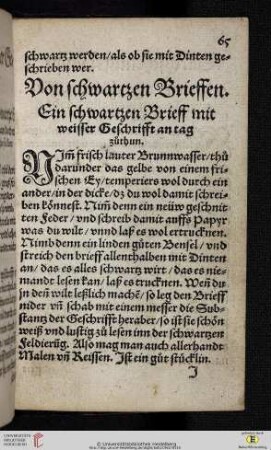 65
schwartz werden/als ob sie mit Dinten ge-
schrieben wer.
Von schwartzen Brieffen.
Ein schwartzen Brieff mit
weisser Geschrifft an tag
zůthun.
Nim̃ frisch lauter Brunnwasser/thů
darunder das gelbe von einem fri-
schen Ey/temperiers wol durch ein
ander/in der dicke/dz du wol damit schrei-
ben könnest. Nim̃ denn ein neüw geschnit-
ten Feder/vnd schreib damit auffs Papyr
was du wilt/vnnd laß es wol ertrucknen.
Nimb denn ein linden gůten Bensel/vnd
streich den brieff allenthalben mit Dinten
an/das es alles schwartz wirt/das es nie-
mandt lesen kan/laß es trucknen. Weñ du
jn deñ wilt leßlich macheñ/so leg den Brieff
nider vñ schab mit einem messer die Sub-
stantz der Geschrifft heraber/so ist sie schön
weiß vnd lustig zů lesen inn der schwartzen
Feldierüg. Also mag man auch allerhandt
Malen vñ Reissen. Ist ein gůt stücklin.
J
UNIVERSITÄTS-
BIBLIOTHEK
HEIDELBERG
© Universitätsbibliothek Heidelberg